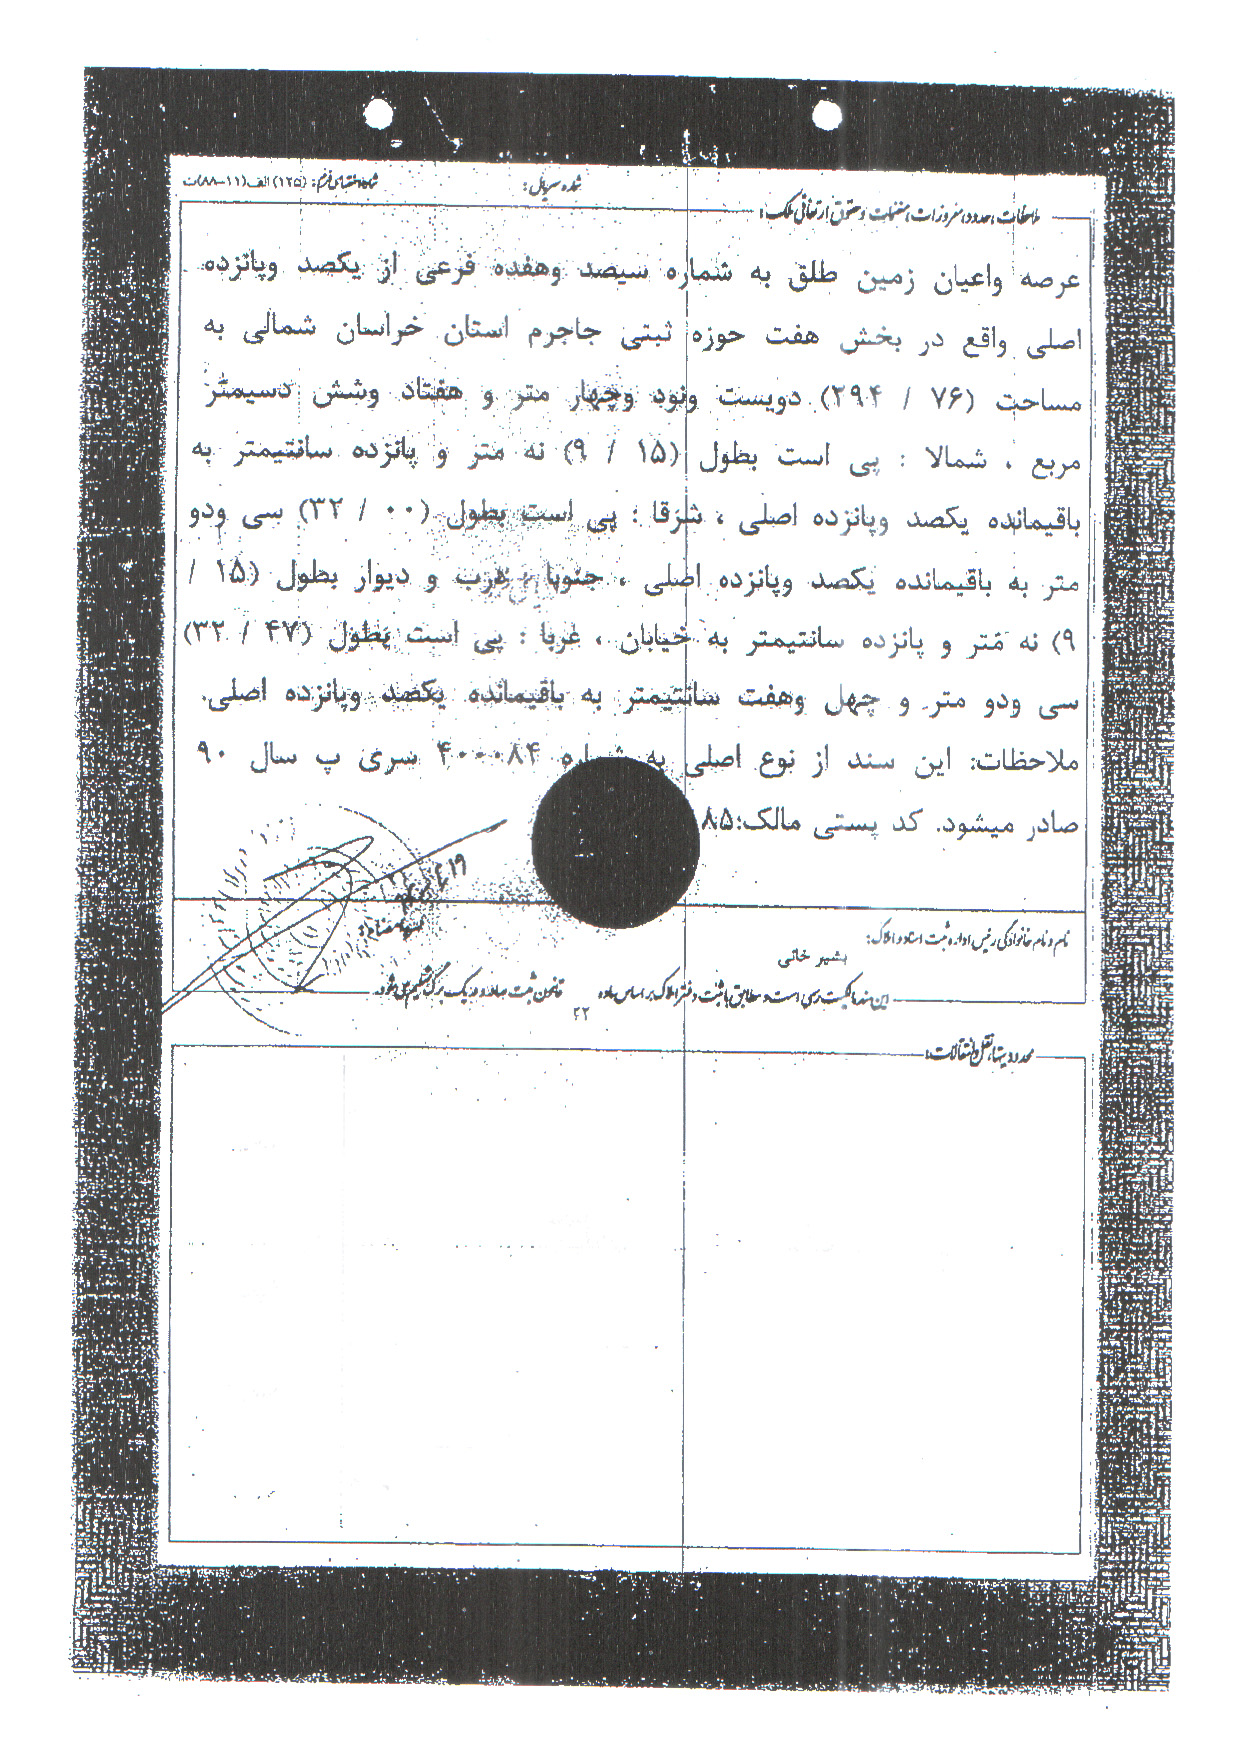 شماره سریال:
شناسه تقاضای فرم: (۱۲۵) الف (۱۱-۸۸) ت
ملاحظات، حدود، مفروزات، منضمات و حقوق ارتفاقی ملک:
عرصه واعیان زمین طلق به شماره سیصد وهفده فرعی از یکصد وپانزده
اصلی واقع در بخش هفت حوزه ثبتی جاجرم استان خراسان شمالی به
مساحت (۷۶ / ۲۹۴) دویست ونود وچهار متر و هفتاد وشش دسیمتر
مربع ، شمالا : پی است بطول (۱۵ / ۹) نه متر و پانزده سانتیمتر به
باقیمانده یکصد وپانزده اصلی ، شرقا : پی است بطول (۰۰ / ۳۲) سی ودو
متر به باقیمانده یکصد وپانزده اصلی ، جنوبا : درب و دیوار بطول (۱۵ /
۹) نه متر و پانزده سانتیمتر به خیابان ، غربا : پی است بطول (۴۷ / ۳۲)
سی ودو متر و چهل وهفت سانتیمتر به باقیمانده یکصد وپانزده اصلی.
ملاحظات: این سند از نوع اصلی به شماره ۴۰۰۰۸۴ سری پ سال ۹۰
صادر میشود. کد پستی مالک:۸۵
نام و نام خانوادگی رئیس اداره ثبت اسناد و املاک:
بشیر خانی
این سند مالکیت رسمی است و مطابق با ثبت دفتر املاک بر اساس ماده
۲۲
قانون ثبت صادر و در یک برگ تسلیم می‌شود.
محدودیتها، نقل و انتقالات: